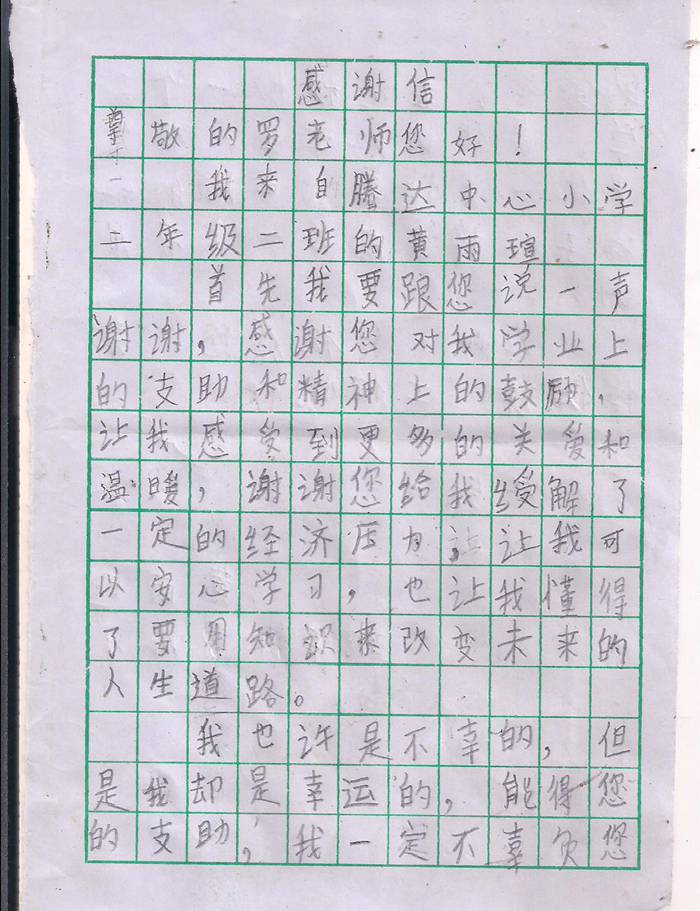 感谢信
尊敬的罗老师您好!
我来自腾达中心小学
二年级二班的黄雨瑄
首先我要跟您说一声
谢谢,感谢您对我学业上
的支助和精神上的鼓励,
让我感受到更多的关爱和
温暖,谢谢您给我缓解了
一定的经济压力,让我可
以安心学习,也让我懂得
了要用知识来改变未来的
人生道路。
我也许是不幸的,但
是我却是幸运的,能得您
的支助,我一定不辜负您